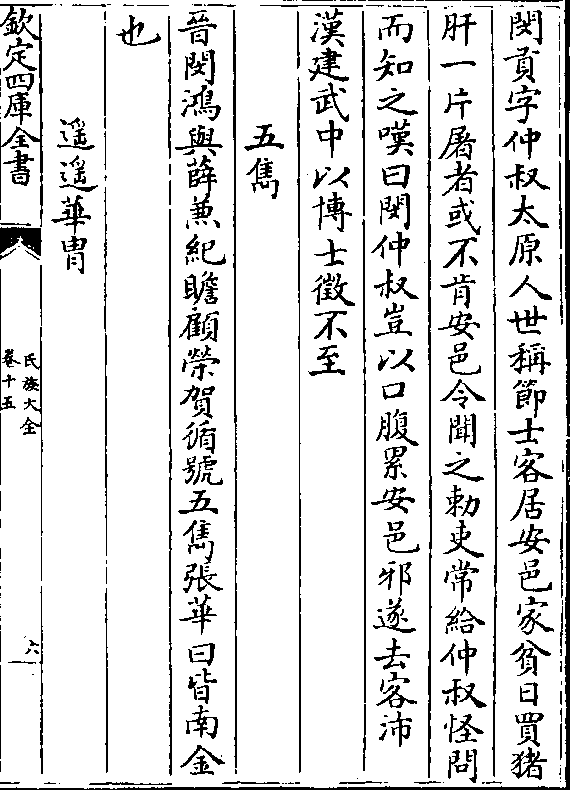 閔貢字仲叔太原人世稱節士客居安邑家貧日買猪
肝一片屠者或不肯安邑令聞之勅吏常給仲叔怪問
而知之嘆曰閔仲叔豈以口腹累安邑邪遂去客沛
漢建武中以博士徵不至
五雋
晉閔鴻與薛兼紀瞻顧榮賀循號五雋張華曰皆南金
也
遥遥華胄
欽定四庫全書
氏族大全
卷十五
六